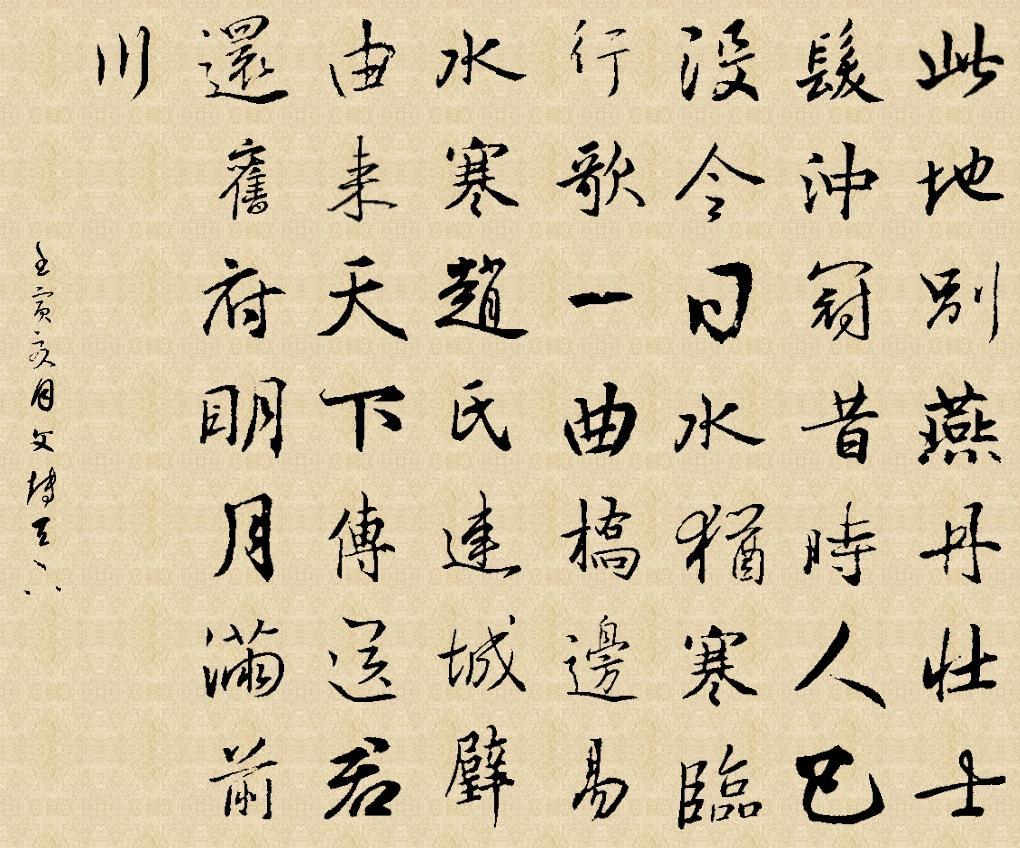 此地別燕丹壮士
髮沖冠昔時人已
沒今日水猶寒臨
行歌一曲橋邊易
水寒趙氏連城璧
由来天下傳送君
還舊府明月滿前
川
壬寅亥月文博